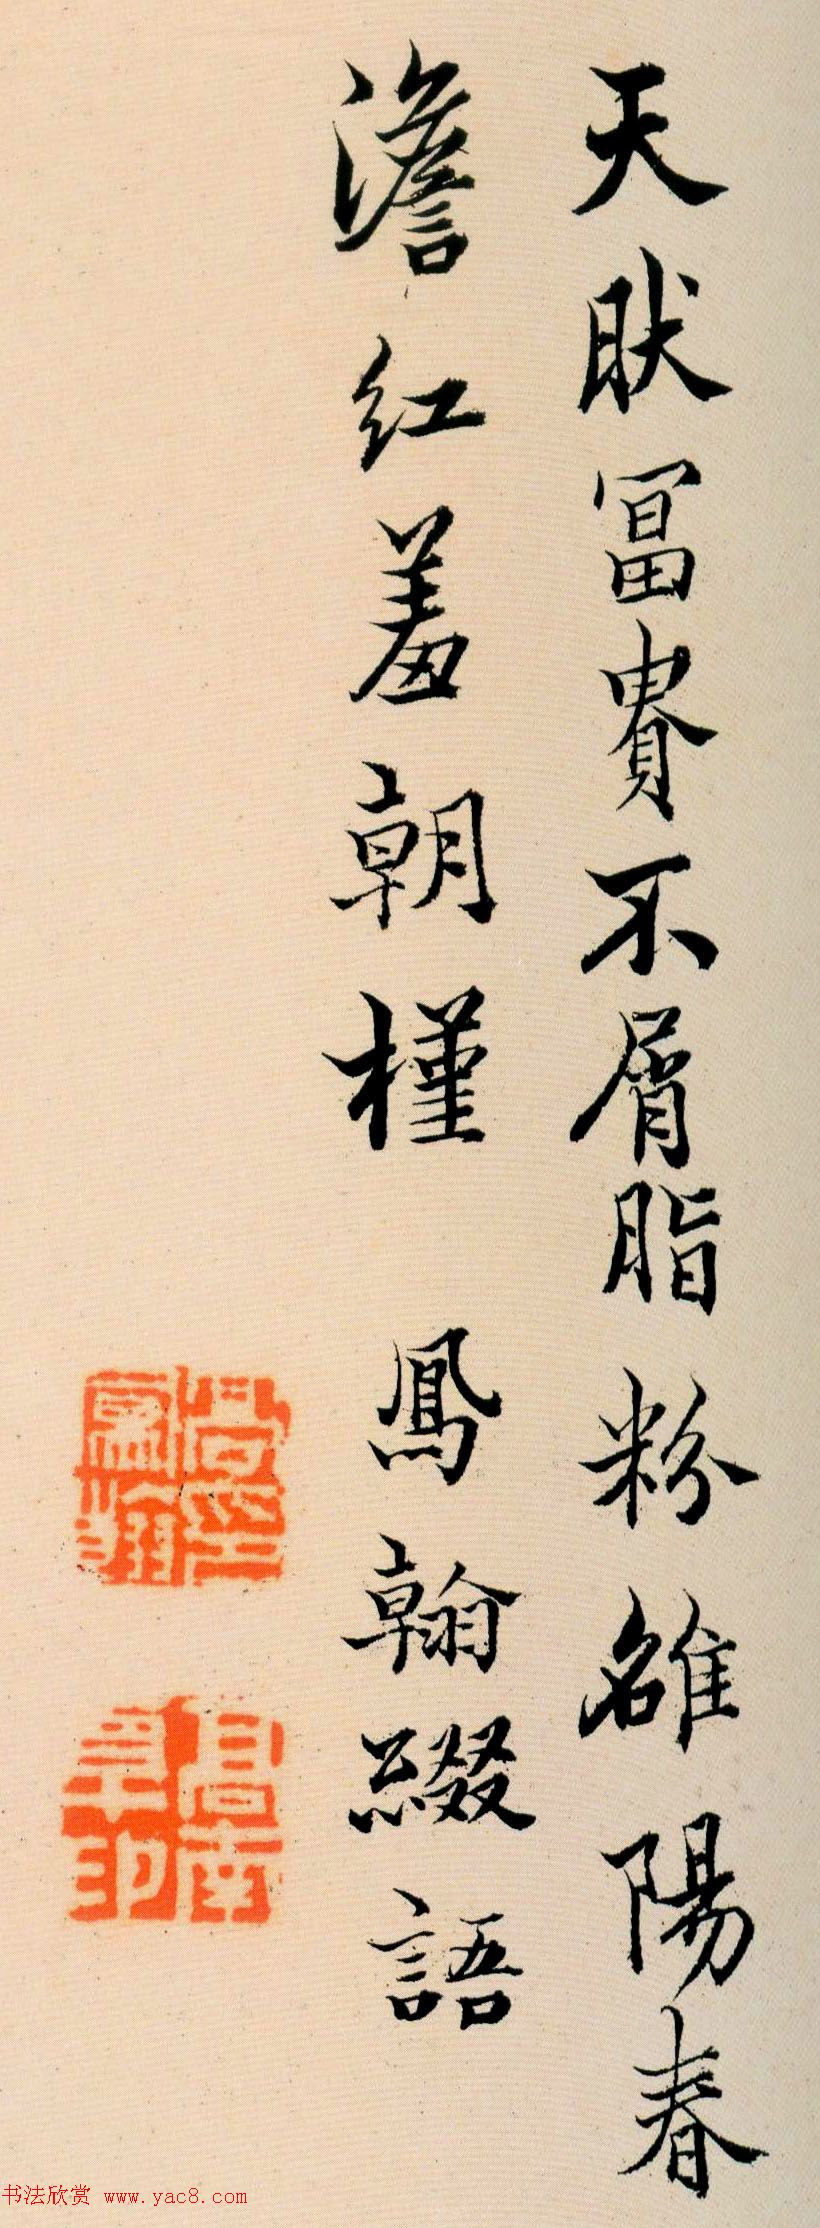 天肰冨貴不屑脂粉雒陽春
澹紅羞朝槿 鳳翰綴語
书法欣赏 www.yac8.com